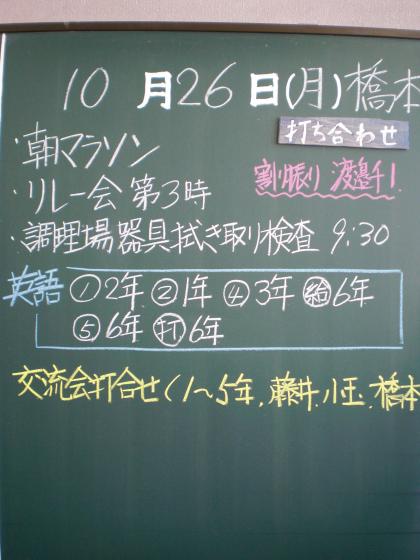 10月26日(月)橋本
打ち合わせ
・朝マラソン
・リレー会 第3時
割り振り 渡邉チ1
・調理場器具拭き取り検査 9:30
英語 ①2年 ②1年 ④3年 給6年
⑤6年 打6年
交流会打合せく1~5年、藤井、小玉、橋本